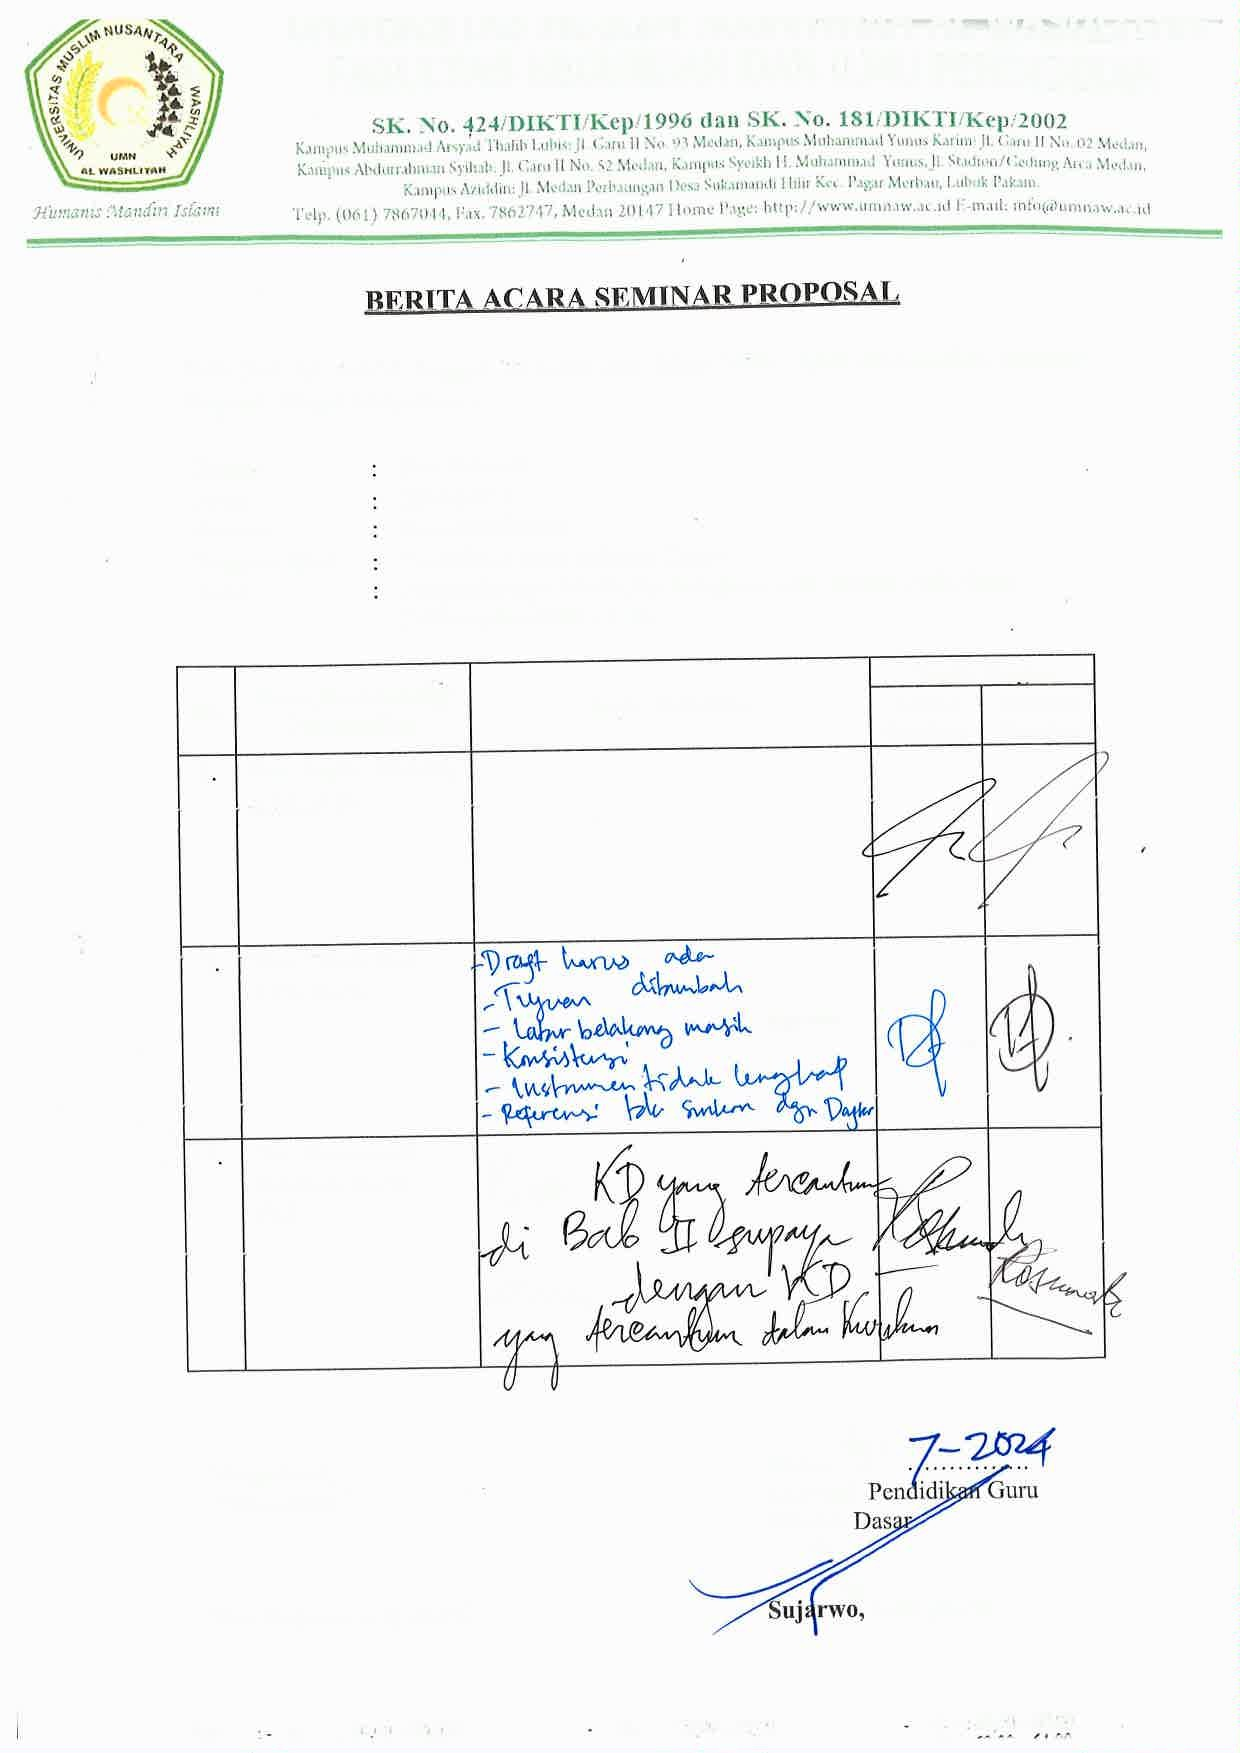 UNIVERSITAS MUSLIM NUSANTARA
WASHLIYAH
UMN
AL WASHLIYAH
Humanis Mandiri Islami
SK. No. 424/DIKTI/Kep/1996 dan SK. No. 181/DIKTI/Kep/2002
Kampus Muhammad Arsyad Thalib Lubis: Jl. Garu II No. 93 Medan, Kampus Muhammad Yunus Karim: Jl. Garu II No. 02 Medan,
Kampus Abdurrahman Syihab: Jl. Garu II No. 52 Medan, Kampus Syeikh H. Muhammad Yunus, Jl. Stadion/Gedung Arca Medan,
Kampus Aziddin: Jl. Medan Perbaungan Desa Sukamandi Hilir Kec. Pagar Merbau, Lubuk Pakam.
Telp. (061) 7867044, Fax. 7862747, Medan 20147 Home Page: http://www.umnaw.ac.id E-mail: info@umnaw.ac.id
BERITA ACARA SEMINAR PROPOSAL
:
:
:
:
:
- Draft harus ada
- Tujuan ditambah
- Latar belakang masih
- Konsistensi
- Instrumen tidak lengkap
- Referensi tdk sinkron dgn Daftar
KD yang tercantum
di Bab II supaya
dengan KD
yang tercantum dalam
7-2024
Pendidikan Guru
Dasar
Sujarwo,